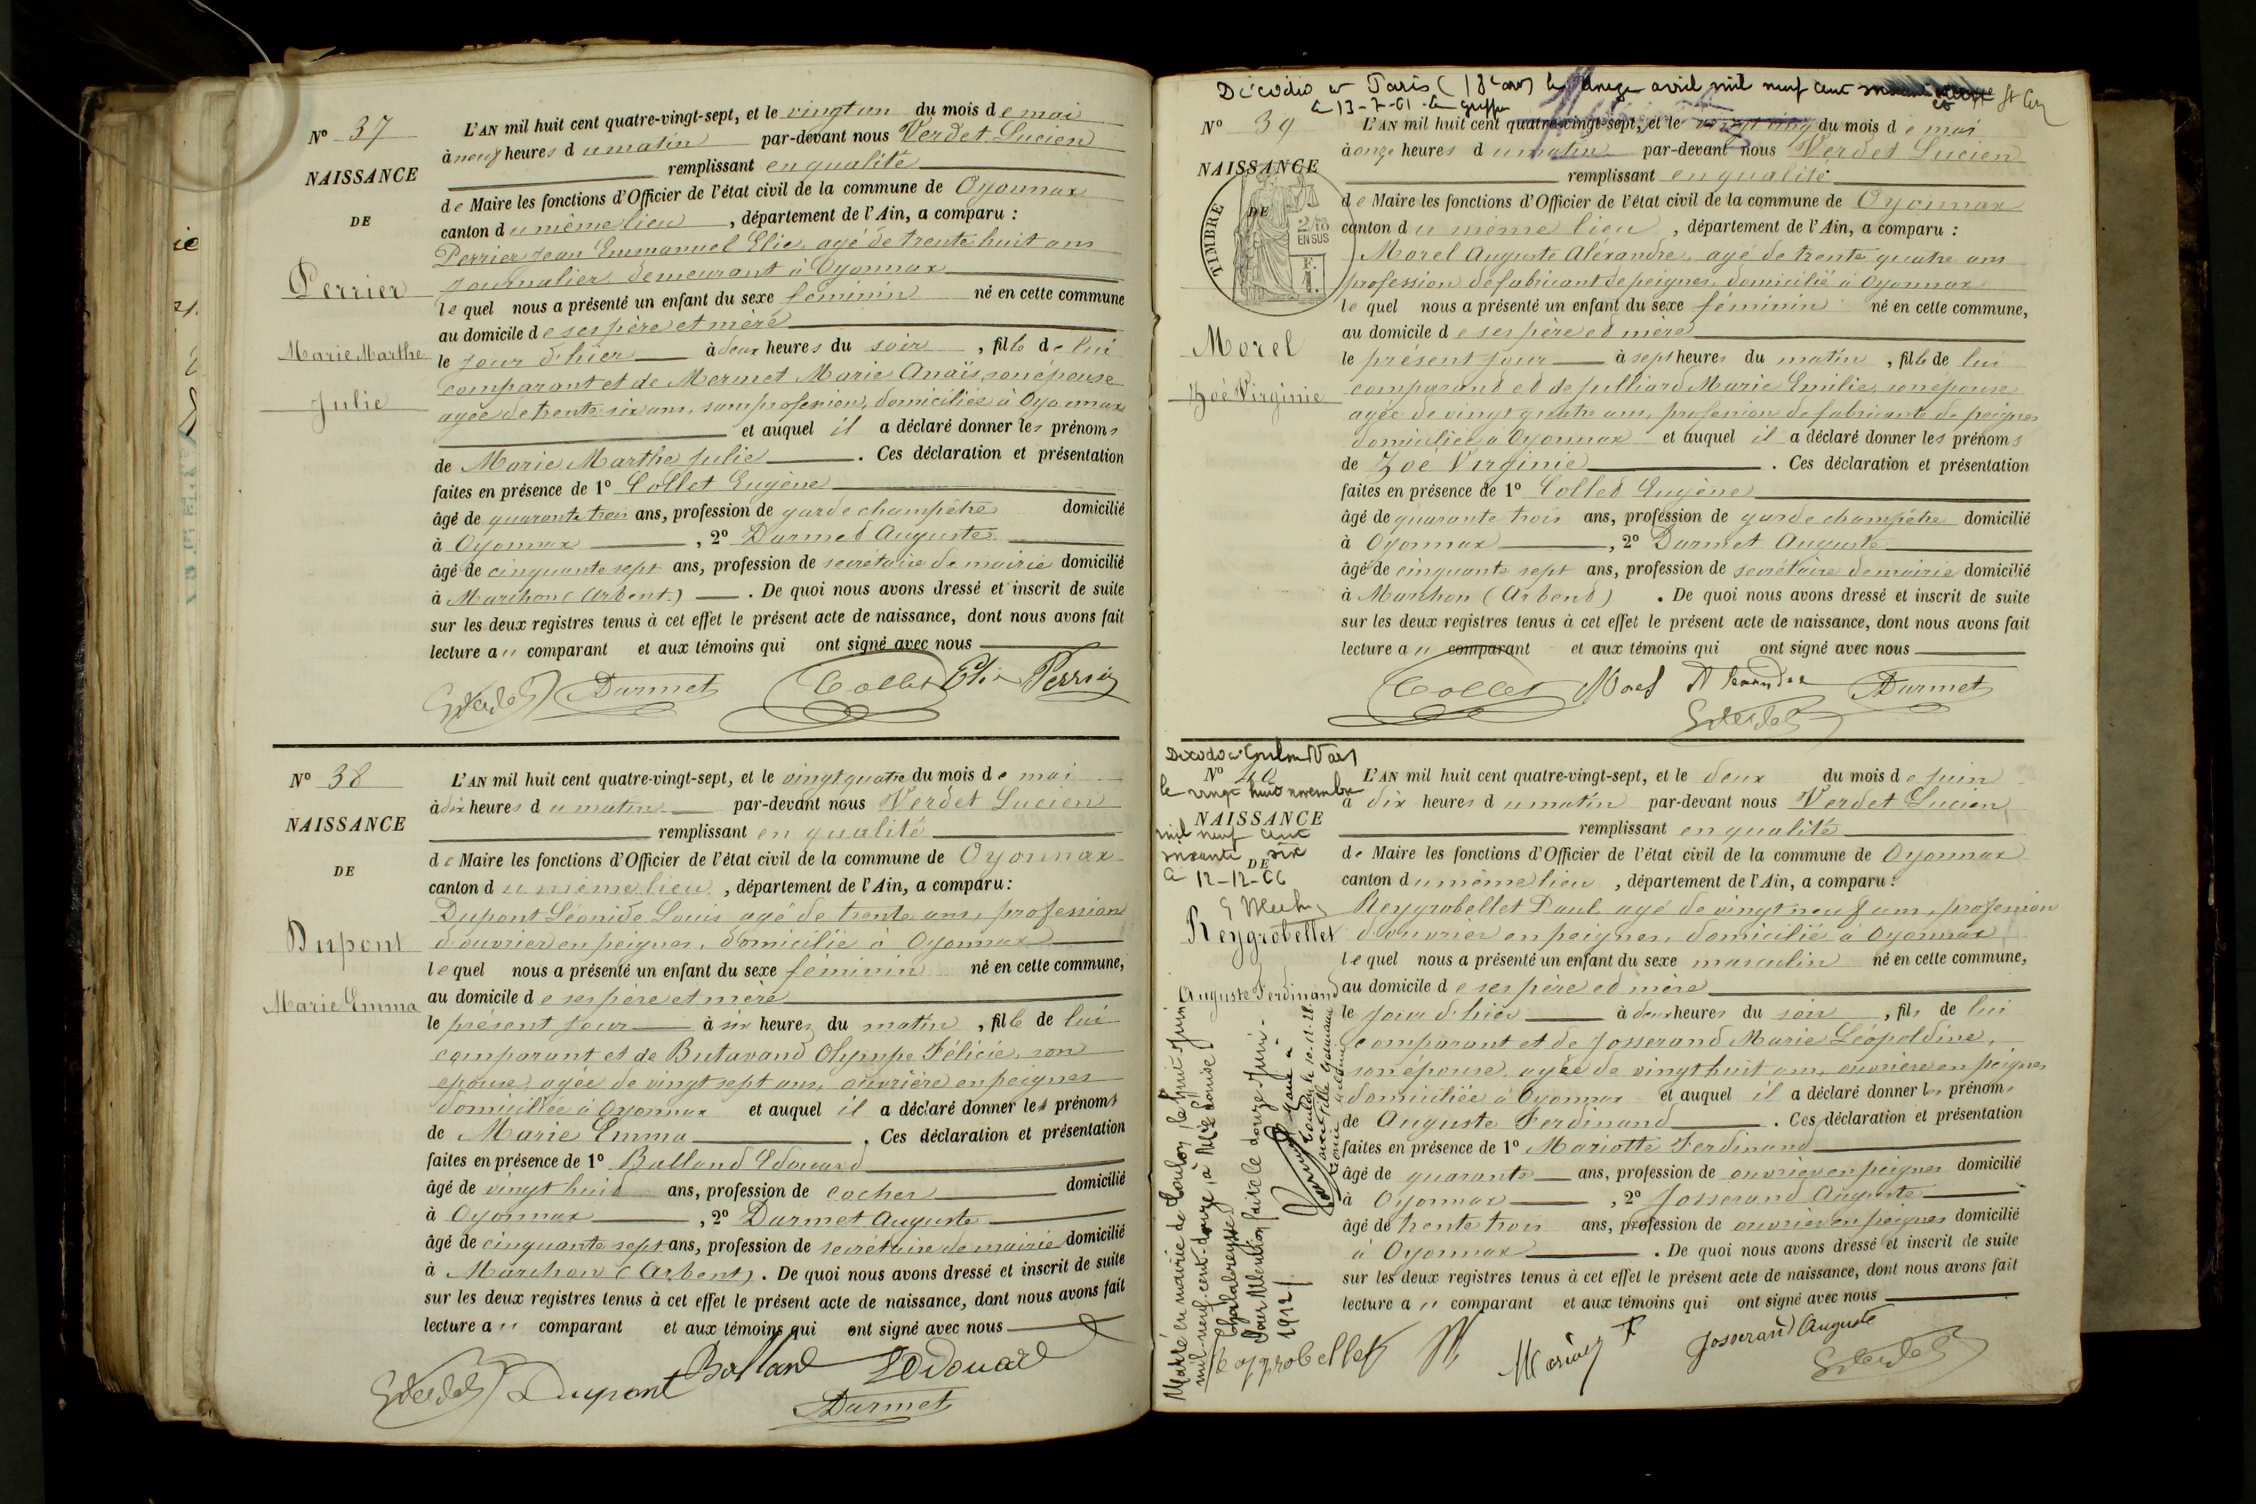 N° 37
NAISSANCE
DE
Perrier
Marie Marthe
Julie
L'AN mil huit cent quatre-vingt-sept, et le vingt un du mois de mai
à neuf heures du matin par-devant nous Verdet Lucien
remplissant en qualité
de Maire les fonctions d'Officier de l'état civil de la commune de Oyonnax
canton du même lieu, département de l'Ain, a comparu :
Perrier Jean Emmanuel Elie, agé de trente huit ans
journalier demeurant à Oyonnax
lequel nous a présenté un enfant du sexe féminin né en cette commune
au domicile de ses père et mère
le jour d'hier à deux heures du soir, fille de lui
comparant et de Mermet Marie Anaïs, son épouse
agée de trente six ans, sans profession, domiciliée à Oyonnax
et auquel il a déclaré donner les prénoms
de Marie Marthe Julie. Ces déclaration et présentation
faites en présence de 1° Collet Eugène
âgé de quarante trois ans, profession de garde champêtre domicilié
à Oyonnax, 2° Darmet Auguste
âgé de cinquante sept ans, profession de secrétaire de mairie domicilié
à Marchon (Arbent). De quoi nous avons dressé et inscrit de suite
sur les deux registres tenus à cet effet le présent acte de naissance, dont nous avons fait
lecture au comparant et aux témoins qui ont signé avec nous
Verdet Darmet Collet Elie Perrier
N° 38
NAISSANCE
DE
Dupont
Marie Emma
L'AN mil huit cent quatre-vingt-sept, et le vingt quatre du mois de mai
à dix heures du matin par-devant nous Verdet Lucien
remplissant en qualité
de Maire les fonctions d'Officier de l'état civil de la commune de Oyonnax
canton du même lieu, département de l'Ain, a comparu :
Dupont Léonide Louis agé de trente ans, profession
d'ouvrier en peignes, domicilié à Oyonnax
lequel nous a présenté un enfant du sexe féminin né en cette commune,
au domicile de ses père et mère
le présent jour à six heures du matin, fille de lui
comparant et de Butavand Olympe Félicie, son
épouse, agée de vingt sept ans, ouvrière en peignes
domiciliée à Oyonnax et auquel il a déclaré donner les prénoms
de Marie Emma. Ces déclaration et présentation
faites en présence de 1° Balland Edouard
âgé de vingt huit ans, profession de cocher domicilié
à Oyonnax, 2° Darmet Auguste
âgé de cinquante sept ans, profession de secrétaire de mairie domicilié
à Marchon (Arbent). De quoi nous avons dressé et inscrit de suite
sur les deux registres tenus à cet effet le présent acte de naissance, dont nous avons fait
lecture au comparant et aux témoins qui ont signé avec nous
Verdet Dupont Balland Edouard
Darmet
Décédée à Paris (18e arr) le onze avril mil neuf cent
le 13-7-61. Le greffier
N° 39
NAISSANCE
DE
TIMBRE
2/10
EN SUS
F.
1.
Morel
Zoé Virginie
L'AN mil huit cent quatre-vingt-sept, et le vingt cinq du mois de mai
à onze heures du matin par-devant nous Verdet Lucien
remplissant en qualité
de Maire les fonctions d'Officier de l'état civil de la commune de Oyonnax
canton du même lieu, département de l'Ain, a comparu :
Morel Auguste Aléxandre, agé de trente quatre ans
profession de fabricant de peignes, domicilié à Oyonnax
lequel nous a présenté un enfant du sexe féminin né en cette commune,
au domicile de ses père et mère
le présent jour à sept heures du matin, fille de lui
comparant et de Julliard Marie Emilie, son épouse
agée de vingt quatre ans, profession de fabricante de peignes
domiciliée à Oyonnax et auquel il a déclaré donner les prénoms
de Zoé Virginie. Ces déclaration et présentation
faites en présence de 1° Collet Eugène
âgé de quarante trois ans, profession de garde champêtre domicilié
à Oyonnax, 2° Darmet Auguste
âgé de cinquante sept ans, profession de secrétaire de mairie domicilié
à Marchon (Arbent). De quoi nous avons dressé et inscrit de suite
sur les deux registres tenus à cet effet le présent acte de naissance, dont nous avons fait
lecture au comparant et aux témoins qui ont signé avec nous
Collet Morel Alexandre Darmet
Verdet
Décédé à Toulon (Var)
le vingt huit novembre
mil neuf cent
soixante six
le 12-12-66
N° 40
NAISSANCE
DE
Reygrobellet
Auguste Ferdinand
L'AN mil huit cent quatre-vingt-sept, et le deux du mois de juin
à dix heures du matin par-devant nous Verdet Lucien
remplissant en qualité
de Maire les fonctions d'Officier de l'état civil de la commune de Oyonnax
canton du même lieu, département de l'Ain, a comparu :
Reygrobellet Paul agé de vingt neuf ans, profession
d'ouvrier en peignes, domicilié à Oyonnax
lequel nous a présenté un enfant du sexe masculin né en cette commune,
au domicile de ses père et mère
le jour d'hier à deux heures du soir, fils de lui
comparant et de Josserand Marie Léopoldine,
son épouse, agée de vingt huit ans, ouvrière en peignes
domiciliée à Oyonnax et auquel il a déclaré donner les prénoms
de Auguste Ferdinand. Ces déclaration et présentation
faites en présence de 1° Mariotte Ferdinand
âgé de quarante ans, profession de ouvrier en peignes domicilié
à Oyonnax, 2° Josserand Auguste
âgé de trente trois ans, profession de ouvrier en peignes domicilié
à Oyonnax. De quoi nous avons dressé et inscrit de suite
sur les deux registres tenus à cet effet le présent acte de naissance, dont nous avons fait
lecture au comparant et aux témoins qui ont signé avec nous
Marié en mairie de Toulon, le huit Juin
mil neuf cent douze, à Louise
Chalabreysse
Pour Mention faite le douze Juin
1912
Reygrobellet Josserand Auguste
Verdet